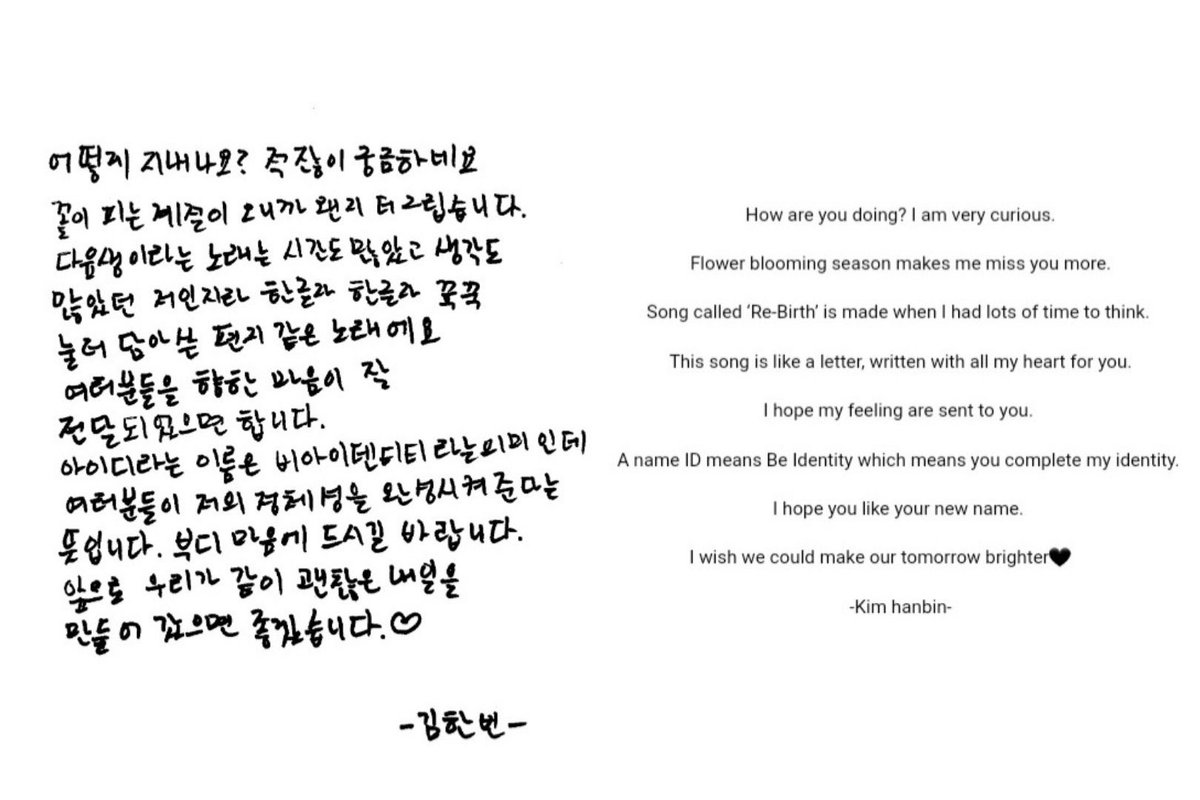 어떻게 지내나요? 적잖이 궁금하네요
꽃이 피는 계절이 오니까 왠지 더 그립습니다.
다음생이라는 노래는 시간도 많았고 생각도
많았던 저인지라 한글자 한글자 꾹꾹
눌러 담아쓴 편지 같은 노래에요
여러분들을 향한 마음이 잘
전달되었으면 합니다.
아이디라는 이름은 비아이덴티티 라는의미 인데
여러분들이 저의 정체성을 완성시켜준다는
뜻입니다. 부디 마음에 드시길 바랍니다.
앞으로 우리가 같이 괜찮은 내일을
만들어 갔으면 좋겠습니다.♡
-김한빈-
How are you doing? I am very curious.
Flower blooming season makes me miss you more.
Song called ‘Re-Birth’ is made when I had lots of time to think.
This song is like a letter, written with all my heart for you.
I hope my feeling are sent to you.
A name ID means Be Identity which means you complete my identity.
I hope you like your new name.
I wish we could make our tomorrow brighter🖤
-Kim hanbin-